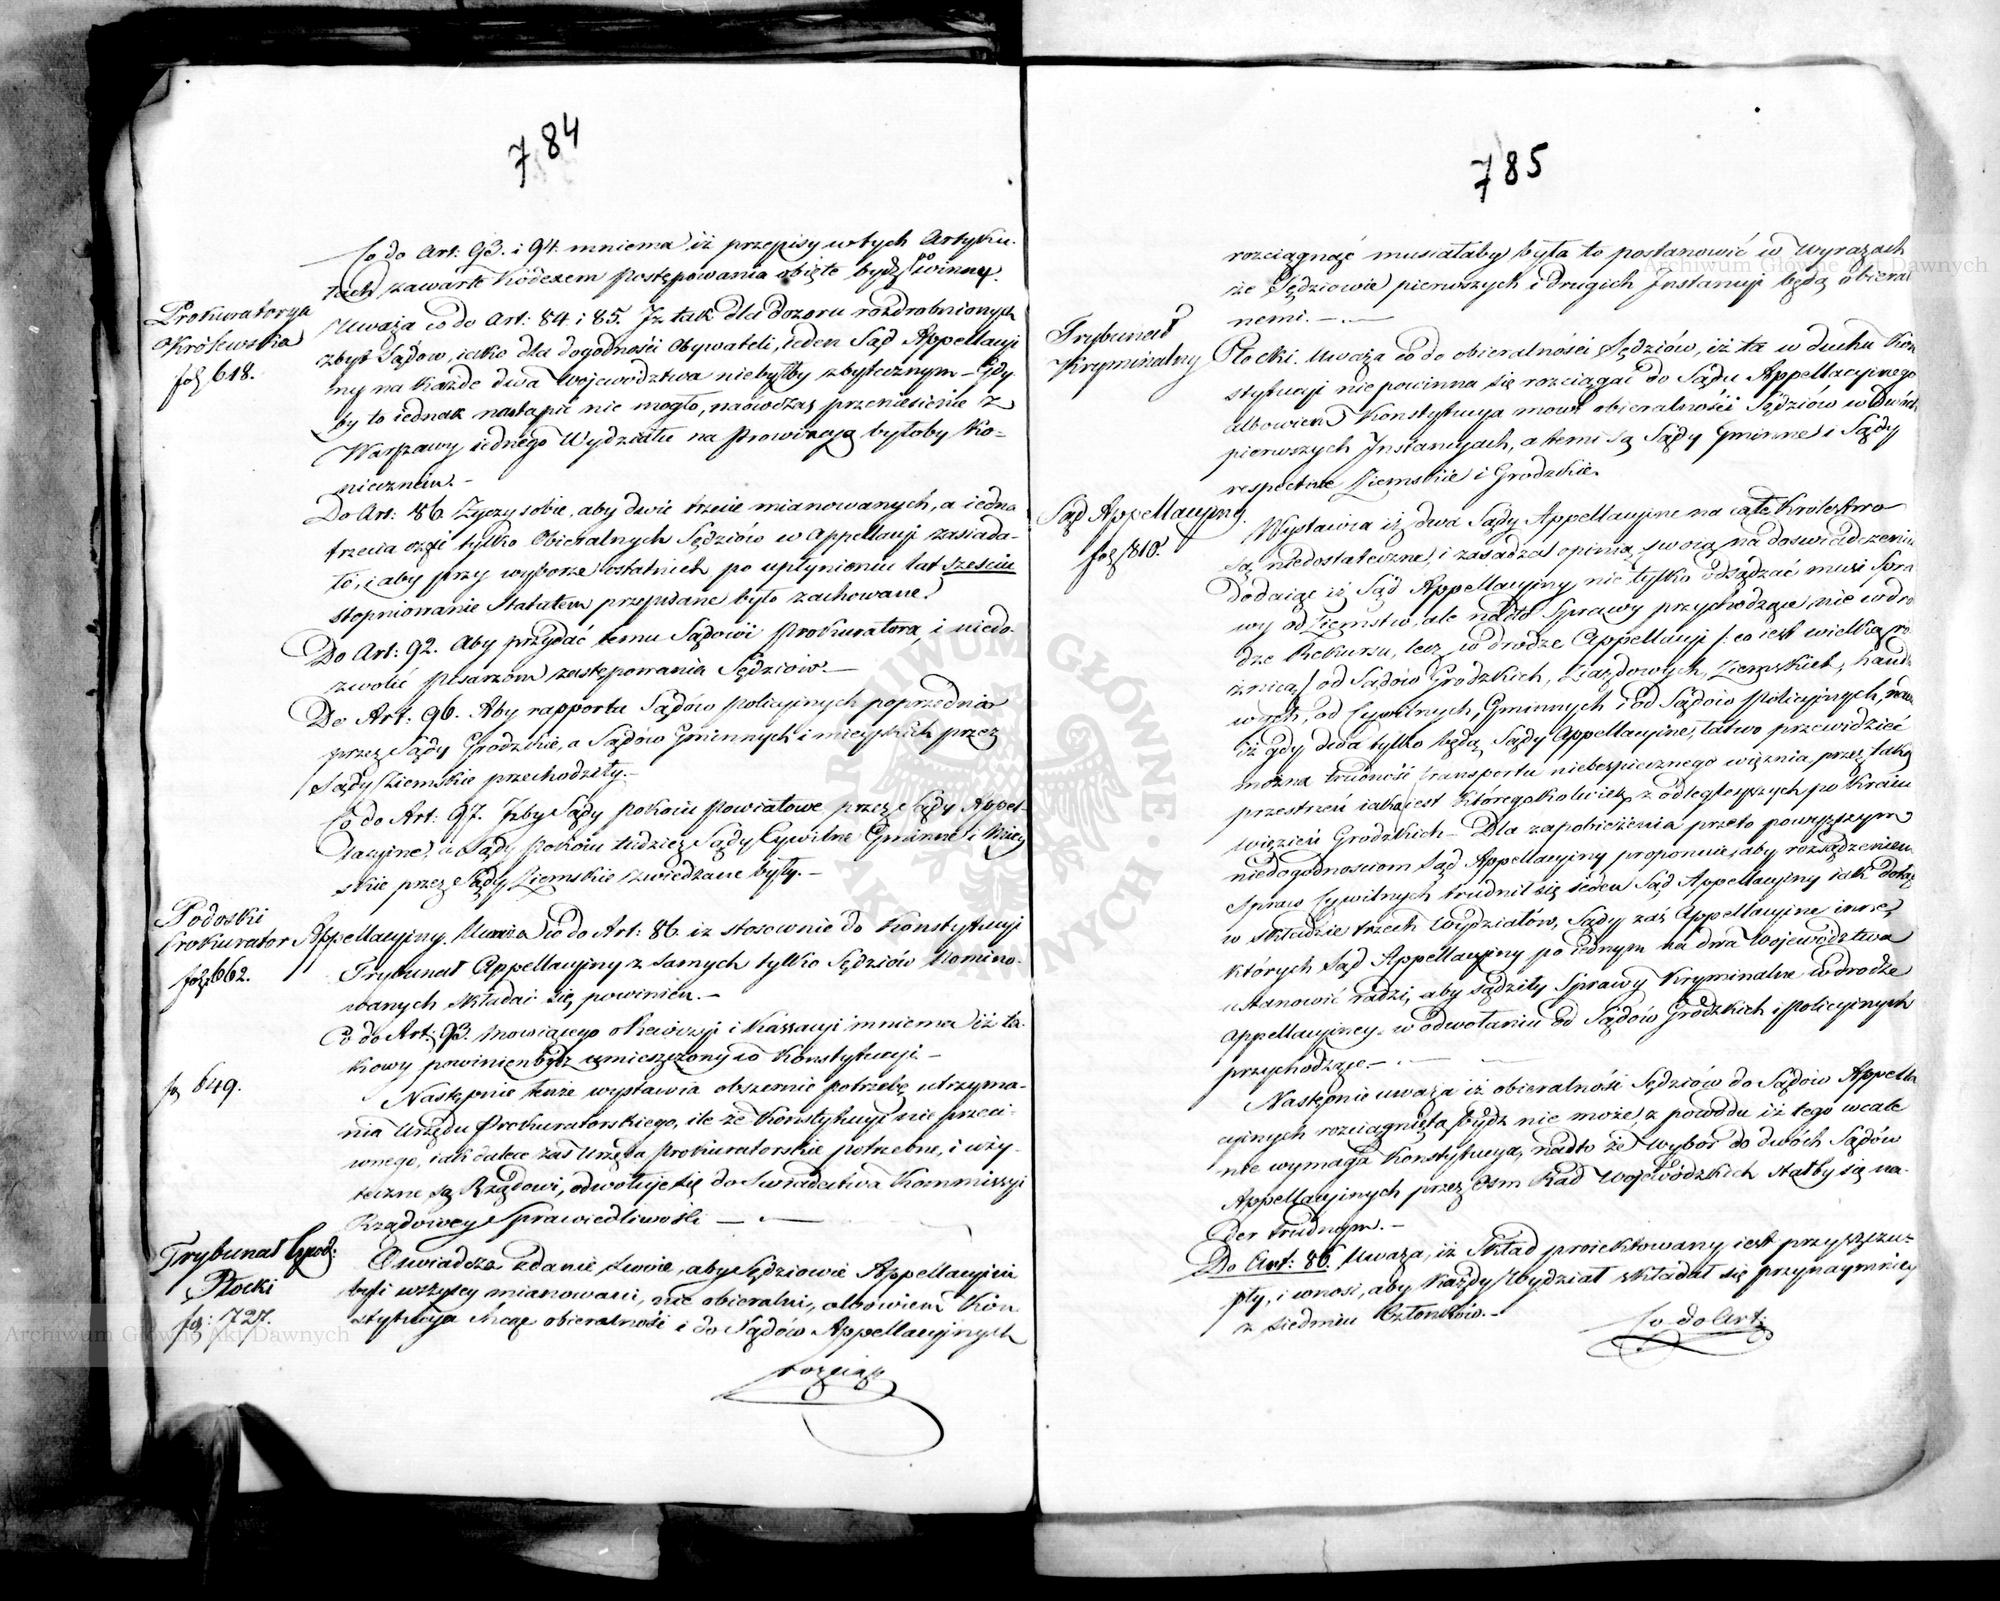 784
Co do Art: 93. i 94. mniema iż przepisy w tych Artyku-
łach zawarte Kodexem Postępowania obięte bydź powinny.
Prokuratorya
Królewska
fol: 618.
Uważa co do Art: 84. i 85. Iż tak dla dozoru rozdrobnionych
zbyt Sądow, iako dla dogodności Obywateli, ieden Sąd Appellacyi
ny na każde dwa Województwa niebyłby zbytecznym – Gdy
by to iednak nastąpić nie mogło, naówczas przeniesienie z
Warszawy iednego Wydziału na Prowincyą byłoby Ko-
niecznem. –
Do Art: 86. Życzy sobie, aby dwie trzecie mianowanych, a iedna
trzecia część tylko Obieralnych Sędziów w Appellacyi zasiada-
ło, i aby przy wyborze ostatnich po upłynieniu lat sześciu
stopniowanie Statutem przepisane było zachowane.
Do Art: 92. Aby przydać temu Sądowi Prokuratora, i niedo-
zwolić Pisarzom zastępowania Sędziów. –
Do Art: 96. Aby rapporta Sądów Policyinych poprzednio
przez Sądy Grodzkie, a Sądów Gminnych i mieyskich przez
Sądy Ziemskie przechodziły. –
Co do Art: 97. Iżby Sądy Pokoiu Powiatowe przez Sądy Appel-
lacyine, a Sądy Pokoiu tudzież Sądy Cywilne Gminne i Miey
skie przez Sądy Ziemskie zwiedzane były. –
Podoski
Prokurator Appellacyiny.
fol: 662.
Uważa co do Art: 86. iż stosownie do Konstytucyi
Trybunał Appellacyiny z samych tylko Sędziów Nomino-
wanych składać się powinien. –
Co do Art: 93. mowiącego o Rewizyi i Kassacyi mniema iż ta-
kowy powinien bydź umieszczony w Konstytucyi –
fol: 649.
Następnie tenże wystawia obszernie potrzebę utrzyma-
nia Urzędu Prokuratorskiego, ile że Konstytucyi nie przeci-
wnego, iak dalece zaś Urzęda Prokuratorskie potrzebne, i uży-
teczne są Rządowi, odwołuje się do Swiadectwa Kommissyi
Rządowey Sprawiedliwości – –
Trybunał Cywil:
Płocki
fol: 727.
Oswiadcza zdanie swoie, aby Sędziowie Appellacyini
byli wszyscy mianowani, nie obieralni, albowiem Kon
stytucya chcąc obieralności i do Sądów Appellacyinych
rozciąg
785
rozciągnąć musiałaby była to postanowić w wyrazach
że Sędziowie pierwszych i drugich Instancyi będą obieral
nemi. – –
Trybunał
Kryminalny Płocki.
Uważa co do obieralności Sędziów, iż ta w duchu Kon
stytucyi nie powinna się rozciągać do Sądu Appellacyinego
albowiem Konstytucya mowi obieralności Sędziów w dwóch
pierwszych Instancyach, a temi są Sądy Gminne i Sądy
respective Ziemskie i Grodzkie.
Sąd Appellacyiny.
fol: 810.
Wystawia iż dwa Sądy Appellacyine na całe Królestwo
są niedostateczne, i zasadza opinią swoią na doswiadczeniu
Dodaiąc iż Sąd Appellacyiny nie tylko osądzać musi Spra
wy od Ziemstw, ale nadto Sprawy przychodzące nie w dro
dze Rekursu, lecz w drodze Appellacyi /: co iest wielką ró
żnicą / od Sądów Grodzkich, Ziazdowych, Ziemskich, hand
wych, od Cywilnych, Gminnych i od Sądów Policyinych,
iż gdy dwa tylko będą Sądy Appellacyine, łatwo przewidzieć
można trudność transportu niebezpiecznego więznia przez taką
przestrzeń iaka iest któregokolwiek z odległeyszych po Kraiu
więzień Grodzkich – Dla zapobieżenia przeto powyższym
niedogodnosciom Sąd Appellacyiny proponuie, aby rozsądzeniem
Spraw Cywilnych trudnił się ieden Sąd Appellacyiny iak dotąd
w składzie trzech Wydziałów, Sądy zaś Appellacyine inne,
których Sąd Appellacyiny po iednym na dwa Województwa
ustanowić radzi, aby sądziły Sprawy Kryminalne w drodze
Appellacyiney w odwołaniu od Sądów Grodzkich i Policyinych
przychodzące. – –
Następnie uważa iż obieralność Sędziów do Sądów Appella
cyinych rozciągniętą bydź nie może, z powodu iż tego wcale
nie wymaga Konstytucya, nadto że wybor do dwóch Sądów
Appellacyinych przez Osm Rad Wojewódzkich stałby się na-
der trudnym. –
Do Art: 86. Uważa, iż Skład proiektowany iest przyszczu-
pły, i wnosi, aby każdy Wydział składał się przynaymniey
z siedmiu Członków. –
Co do Art: